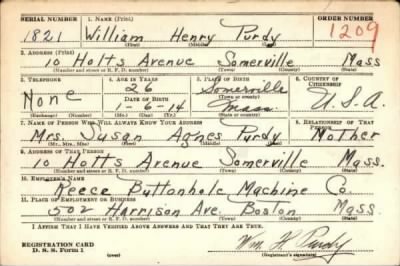 SERIAL NUMBER 1. NAME (Print) ORDER NUMBER
1821 William Henry Purdy 1209
(First) (Middle) (Last)
2. ADDRESS (Print)
10 Holts Avenue Somerville Mass
(Number and street or R. F. D. number) (Town) (County) (State)
3. TELEPHONE 4. AGE IN YEARS 5. PLACE OF BIRTH 6. COUNTRY OF CITIZENSHIP
26 Somerville
None DATE OF BIRTH (Town or county) U.S.A.
1-6-14 Mass.
(Exchange) (Number) (Mo.) (Day) (Yr.) (State or country)
7. NAME OF PERSON WHO WILL ALWAYS KNOW YOUR ADDRESS 8. RELATIONSHIP OF THAT PERSON
Mrs. Susan Agnes Purdy Mother
(Mr., Mrs., Miss) (First) (Middle) (Last)
9. ADDRESS OF THAT PERSON
10 Holts Avenue Somerville Mass.
(Number and street or R. F. D. number) (Town) (County) (State)
10. EMPLOYER'S NAME
Reece Buttonhole Machine Co.
11. PLACE OF EMPLOYMENT OR BUSINESS
502 Harrison Ave. Boston Mass.
(Number and street or R. F. D. number) (Town) (County) (State)
I AFFIRM THAT I HAVE VERIFIED ABOVE ANSWERS AND THAT THEY ARE TRUE.
REGISTRATION CARD
D. S. S. Form 1 (over) Wm H Purdy
(Registrant's signature)